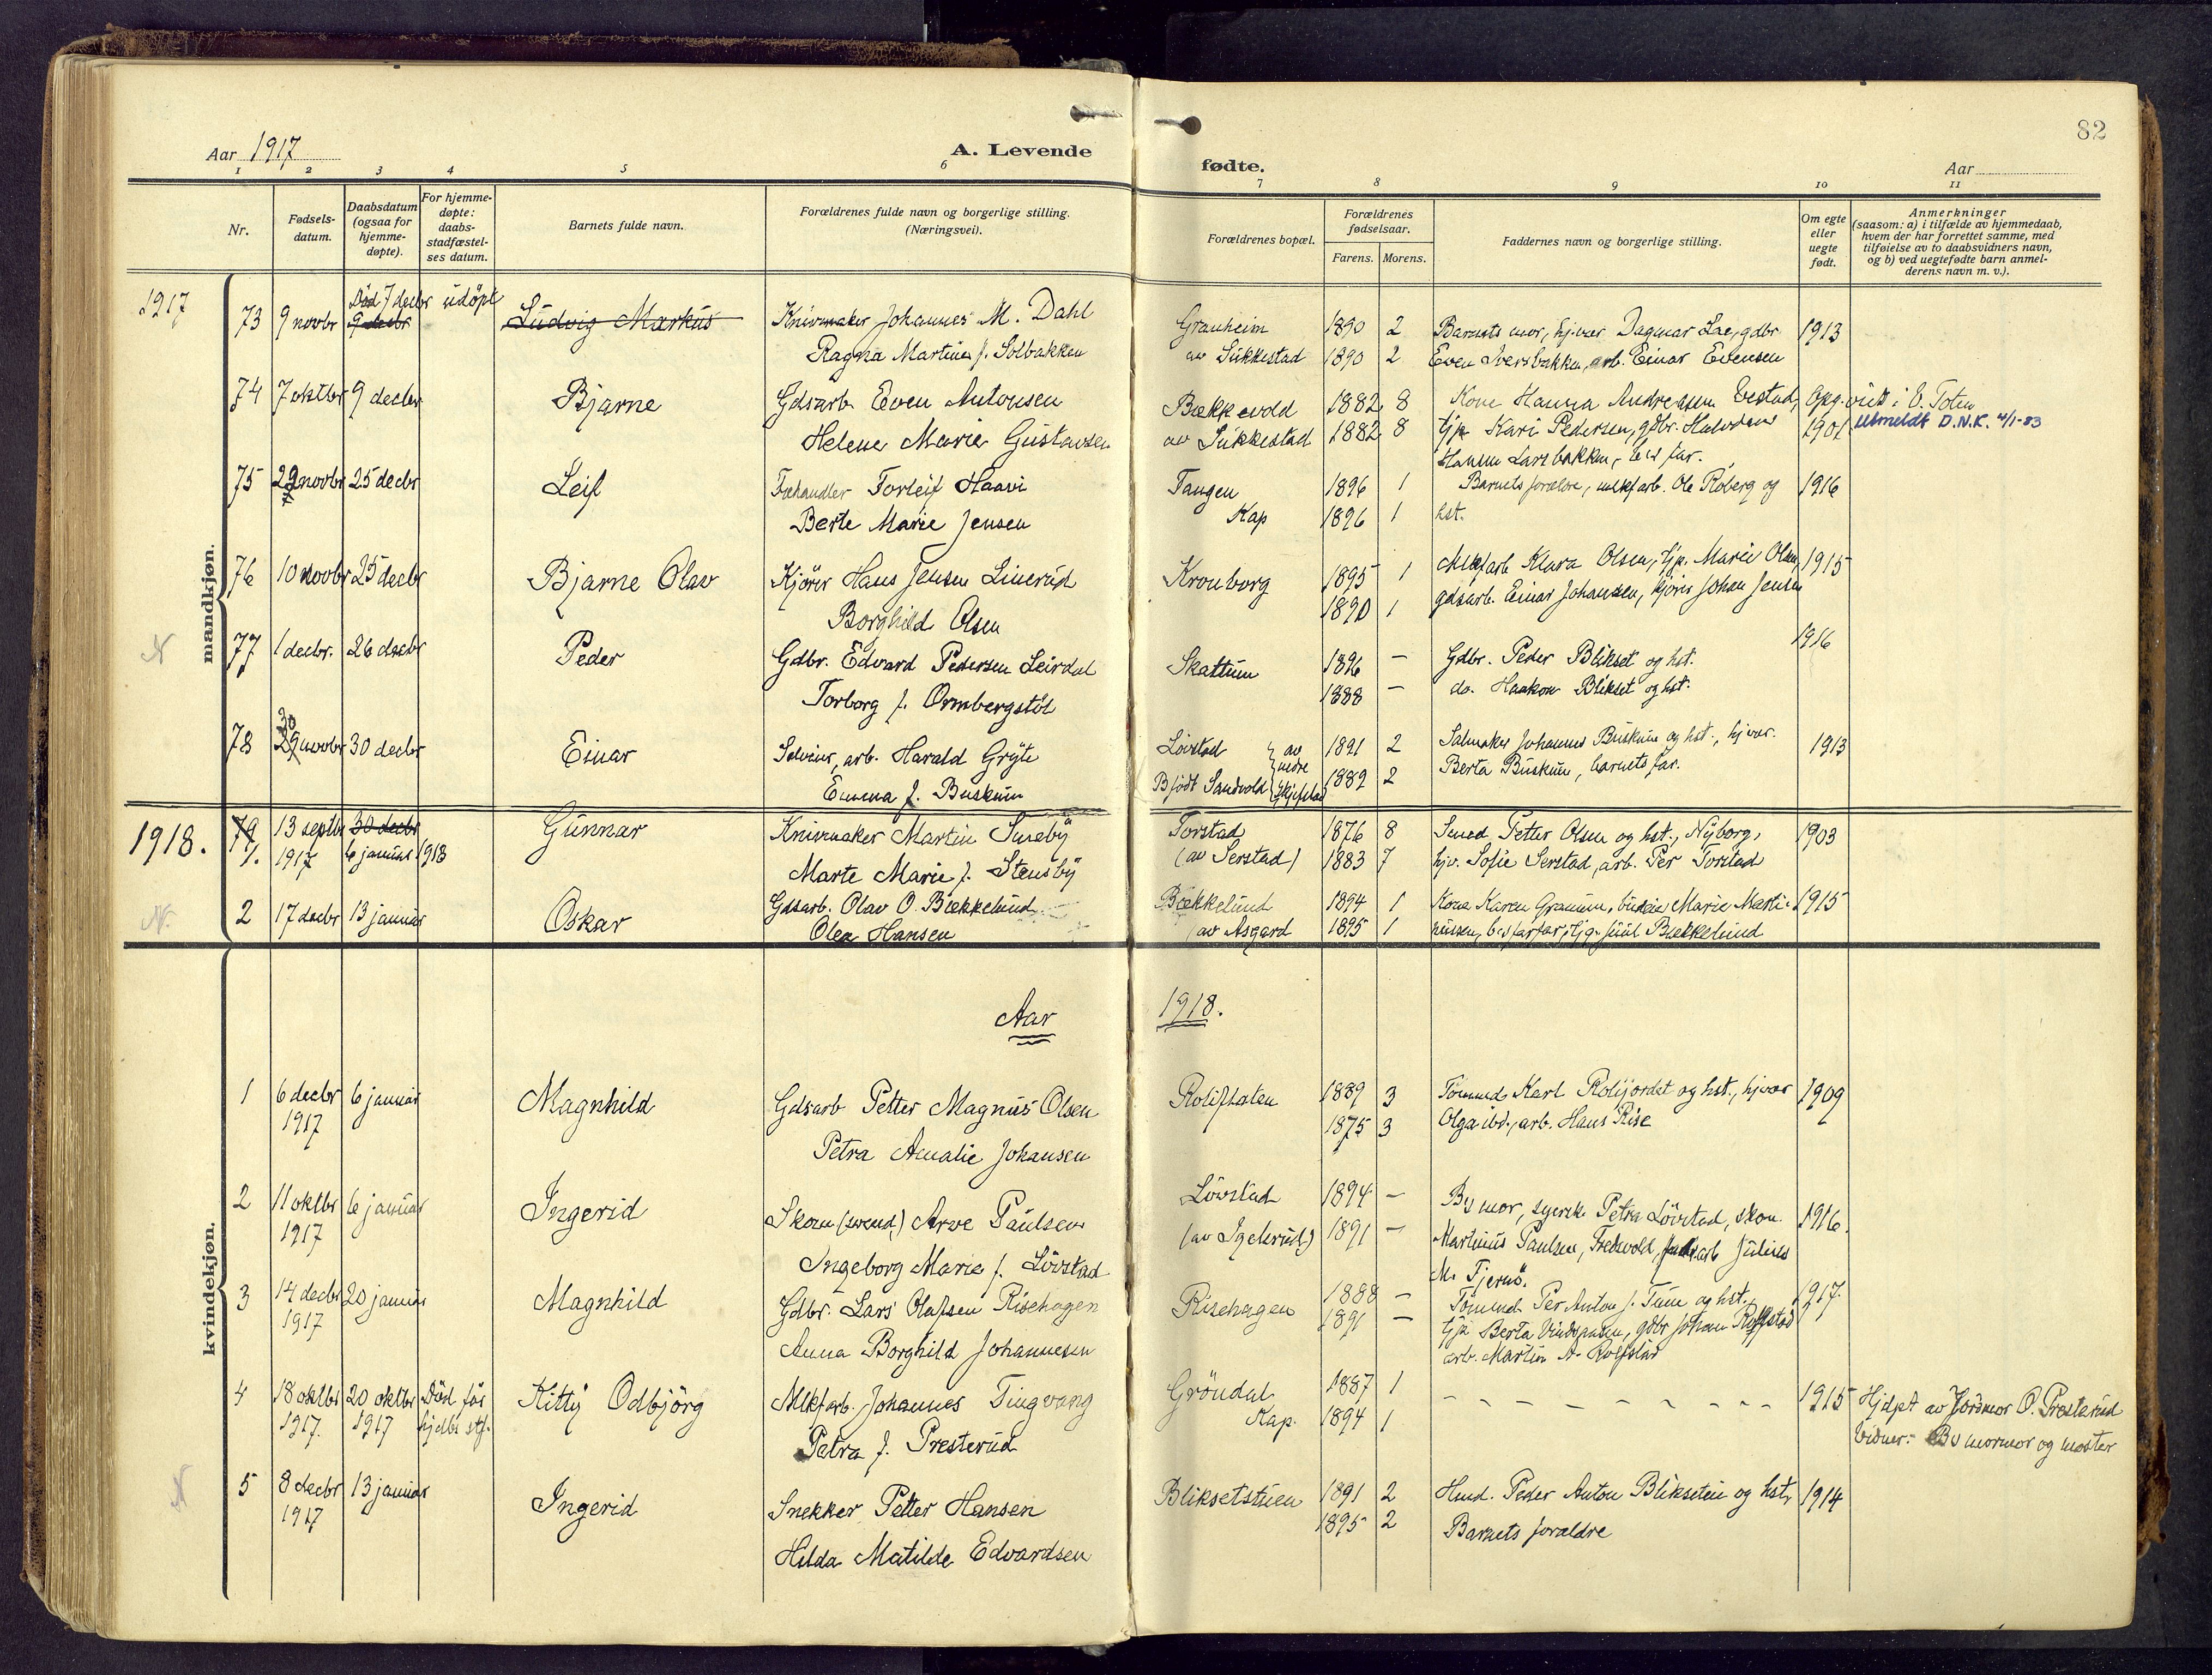 82
Aar 1917
A. Levende
fødte.
Aar
1 2 3 4 5 6 7 8 9 10 11
Nr.
Fødsels-
datum.
Daabsdatum
(ogsaa for
hjemme-
døpte).
For hjemme-
døpte:
daabs-
stadfæstel-
ses datum.
Barnets fulde navn.
Forældrenes fulde navn og borgerlige stilling.
(Næringsvei).
Forældrenes bopæl.
Forældrenes
fødselsaar.
Farens. Morens.
Faddernes navn og borgerlige stilling.
Om egte
eller
uegte
født.
Anmerkninger
(saasom: a) i tilfælde av hjemmedaab,
hvem der har forrettet samme, med
tilføielse av to daabsvidners navn,
og b) ved uegtefødte barn anmel-
derens navn m. v.).
mandkjøn.
1917
73 9 novbr Död 7 decbr udöpt Ludvig Markus Knivmaker Johannes M. Dahl Granheim 1890 2 Barnets mor, hjvær Dagmar Lae, gdbr 1913
9 decbr Ragna Martine f. Solbakken av Sukkestad 1890 2 Even Iversbakken, arb. Einar Evensen
74 7 oktbr 9 decbr Bjarne Gdsarb. Even Antonsen Bækkevold 1882 8 Kone Hanna Andreassen Evestad, Opg. viet i V. Toten
Helene Marie Gustavsen av Sukkestad 1882 8 tjp Kari Pedersen, gdbr. Halvdan 1901 Utmeldt D.N.K. 4/1-83
Hansen Larsbakken, b's far.
75 29 novbr 25 decbr Leif Frehandler Torleif Haavi Tangen 1896 1 Barnets forældre, mlkfarb. Ole Roberg og 1916
Berte Marie Jensen Kap 1896 1 hst.
76 10 novbr 25 decbr Bjarne Olav Kjörer Hans Jensen Linerud Kronborg 1895 1 Mlkfarb Klara Olsen, tjp. Marie Olsen, 1915
Borghild Olsen 1890 1 gdsarb. Einar Johansen, kjörer Johan Jensen
N 77 1 decbr. 26 decbr Peder Gdbr. Edvard Pedersen Leirdal Skattum 1896 — Gdbr. Peder Blikset og hst. 1916
Torborg f. Ormbergstöl 1888 — do. Haakon Blikset og hst.
78 30 novbr 30 decbr Einar arb. Harald Gryte Lövstad av 1891 2 Salmaker Johannes Buskum og hst., hjvær. 1913
Emma f. Buskum Bfödt Sandvold nedre Skjefstad 1882 2 Berta Buskum, barnets far.
1918.
79 13 septbr 30 decbr Gunnar Knivmaker Martin Smeby Torstad 1876 8 Smed Petter Olsen og hst., Nyborg, 1903
1. 1917 6 januar 1918 Marte Marie f. Stensby (av Serstad) 1883 7 hjv. Sofie Serstad, arb. Per Torstad
N. 2 17 decbr 13 januar Oskar Gdsarb. Olav O. Bækkelund Bækkelund 1894 1 Kone Karen Granum, budeie Marie Marti- 1915
Olea Hansen av Asgard 1895 1 niussen, b's farfar, tjg. Juul Bækkelund
Aar 1918.
kvindekjøn.
1 6 decbr 6 januar Magnhild Gdsarb Petter Magnus Olsen Rolifhaten 1889 3 Tömmd Karl Rolijordet og hst., hjvær 1909
1917 Petra Amalie Johansen 1875 3 Olga ibd., arb. Hans Rise
2 11 oktbr 6 januar Ingerid Skom (svend) Arve Paulsen Lövstad 1894 — B's mor, syerske Petra Lövstad, skom. 1916.
1917 Ingeborg Marie f. Lövstad (av Igelrud) 1891 — Martinius Paulsen, Fredvold, arb Julius
M. Tjernö.
3 14 decbr 20 januar Magnhild Gdbr. Lars Olafsen Risehagen Risehagen 1888 — Tömmd. Per Anton f. Tum og hst., 1917.
1917 Anna Borghild Johannesen 1891 — tjp Berta Vindspusen, gdbr Johan Rolfstad
arb. Martin A. Rolfstad
4 18 oktbr 20 oktbr Död för Kitty Odbjörg Mlkfarb. Johannes Tingvang Gröndal 1887 1 – – – – – – – – 1915 Hjdpt av Jordmor O. Presterud
1917. 1917 hjdbs stf. Petra f. Presterud Kap. 1894 1 Vidner: B's mormor og moster
N 5 8 decbr 13 januar Ingerid Snekker Petter Hansen Bliksetstuen 1891 2 Hmd. Peder Anton Blikseteie og hst, 1914
1917 Hilda Matilde Edvardsen 1895 2 Barnets forældre